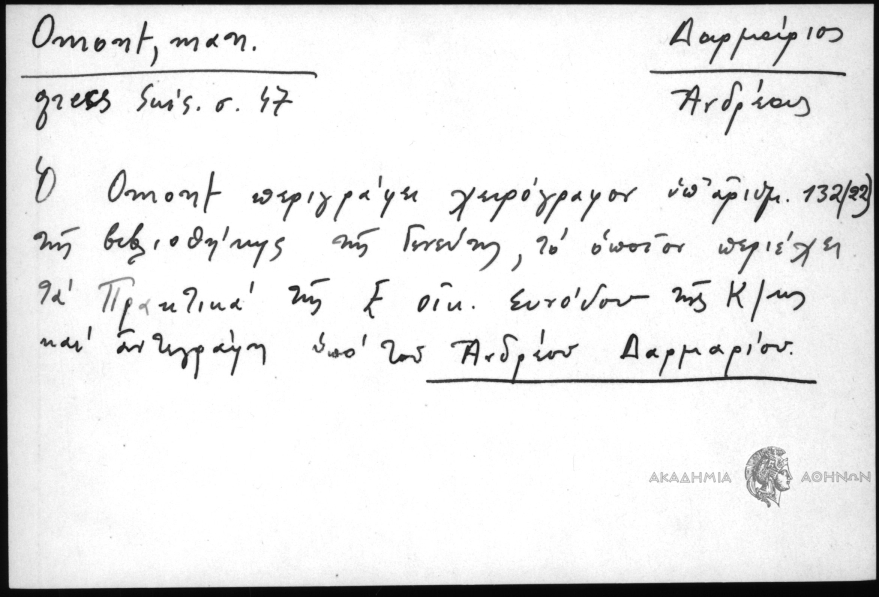 Omont, man.
Δαρμάριος
grecs Suis. σ. 47
Ἀνδρέας
Ὁ Omont περιγράφει χειρόγραφον ὑπ' ἀριθμ. 132(22)
τῆς βιβλιοθήκης τῆς Γενεύης, τό ὁποῖον περιέχει
τά Πρακτικά τῆς οἰκ. Συνόδου τῆς Κ/πης
καί ἀντεγράφη ὑπό τοῦ Ἀνδρέου Δαρμαρίου.
ΑΚΑΔΗΜΙΑ ΑΘΗΝΩΝ